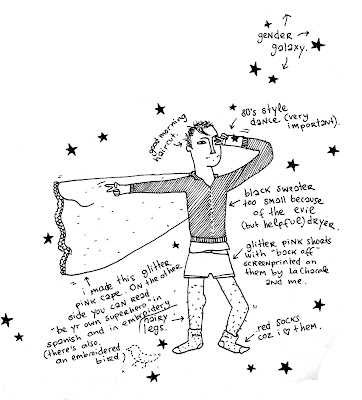 gender
galaxy.
80's style
dance (very
important).
good morning
haircut.
black sweater
too small because
of the evil
(but helpful) dryer.
glitter pink shorts
with "back off"
screenprinted on
them by La Chocha
and me.
i made this glitter
pink cape. On the other
side you can read
"be yr own superhero" in
spanish and in embroidery
(there's also
an embroidered
bird)
hairy
legs.
red socks
coz i ♡ them.